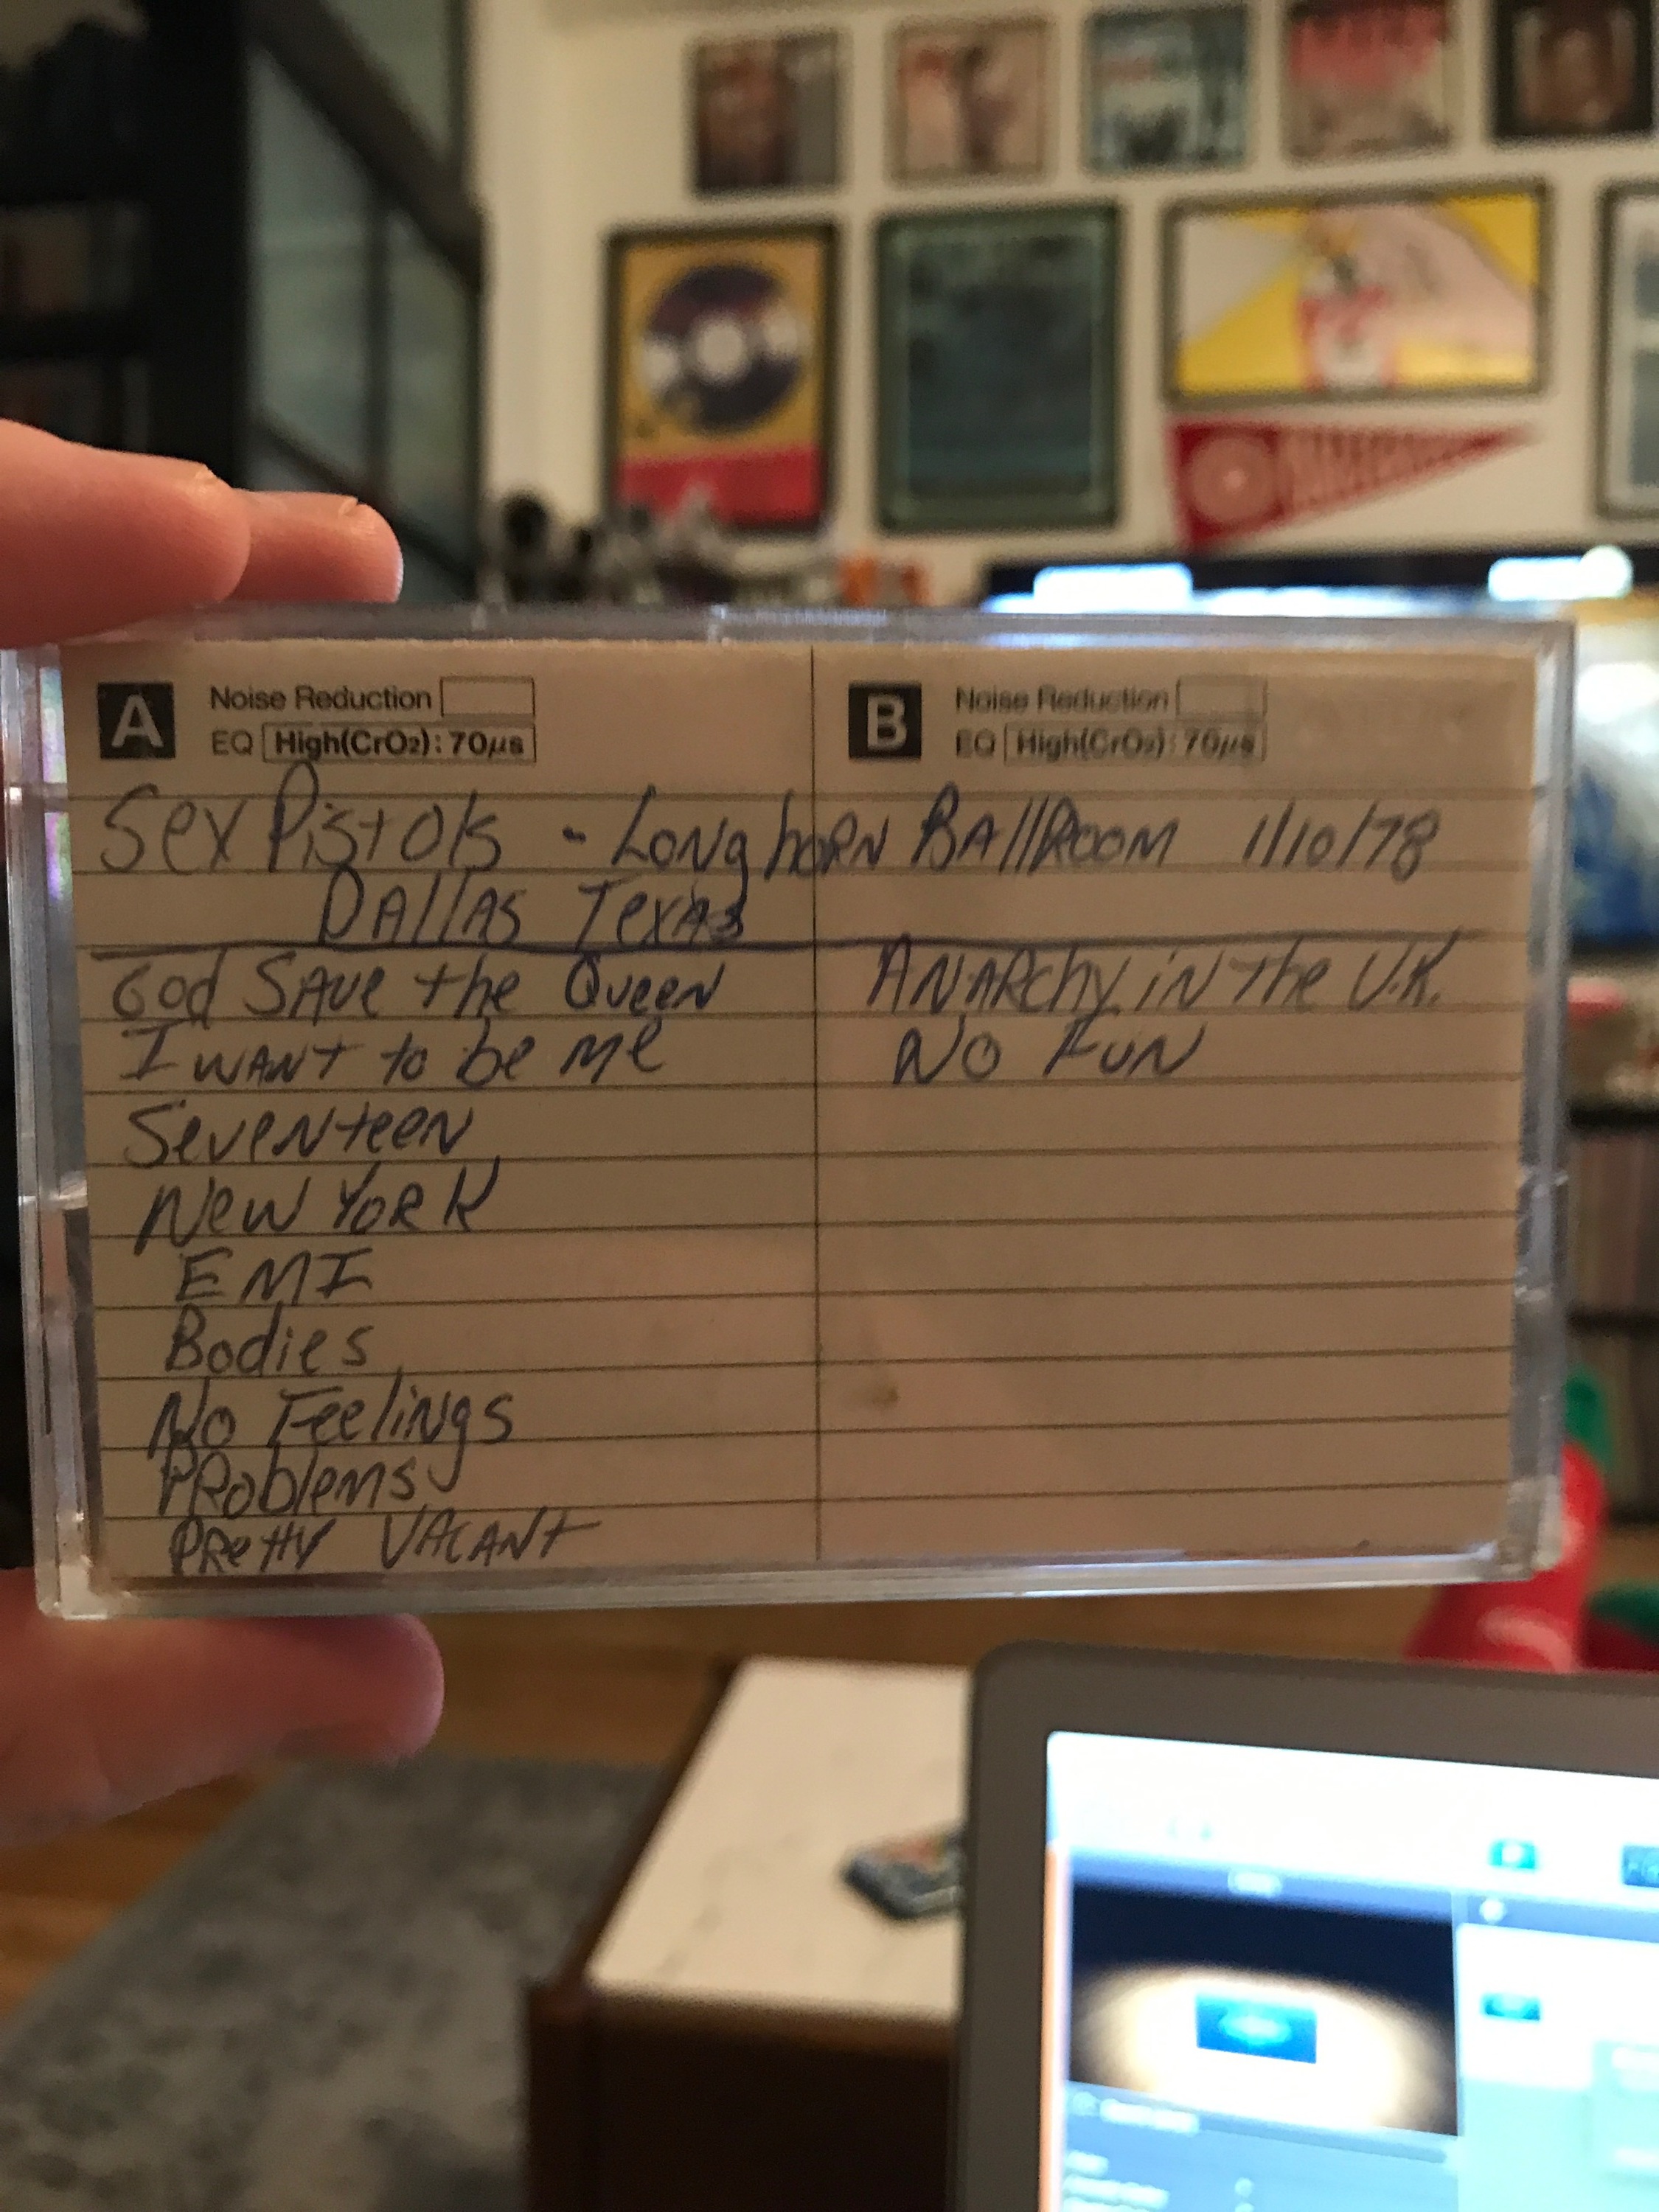 A Noise Reduction
EQ High(CrO₂): 70μs
B Noise Reduction
EQ High(CrO₂): 70μs
Sex Pistols - Longhorn Ballroom 1/10/78
Dallas Texas
God Save the Queen
I want to be me
Seventeen
New York
EMI
Bodies
No Feelings
Problems
Pretty Vacant
Anarchy in the U.K.
No Fun